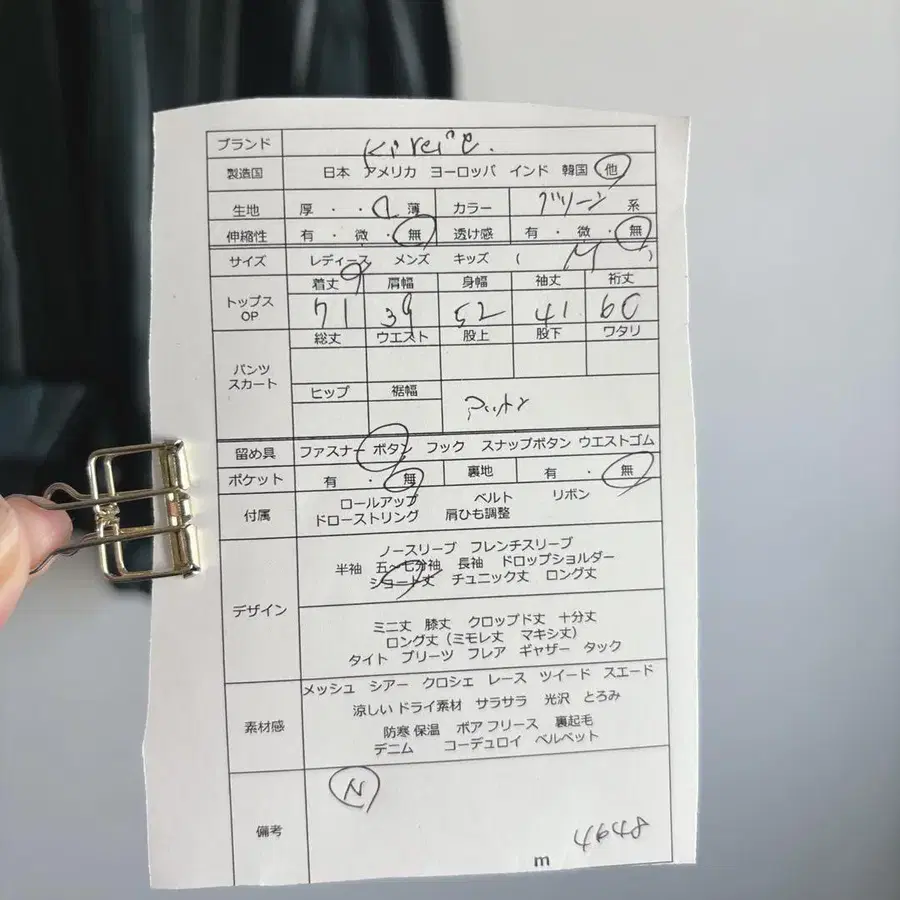 ブランド Kireie.
製造国 日本 アメリカ ヨーロッパ インド 韓国 他
生地 厚・・薄 カラー グリーン 系
伸縮性 有・微・無 透け感 有・微・無
サイズ レディース メンズ キッズ ( M )
トップス OP 着丈 肩幅 身幅 袖丈 裄丈
71 39 52 41 60
パンツ スカート 総丈 ウエスト 股上 股下 ワタリ
ヒップ 裾幅
留め具 ファスナー ボタン フック スナップボタン ウエストゴム
ポケット 有・無 裏地 有・無
付属 ロールアップ ベルト リボン
ドローストリング 肩ひも調整
デザイン ノースリーブ フレンチスリーブ
半袖 五〜七分袖 長袖 ドロップショルダー
ショート丈 チュニック丈 ロング丈
ミニ丈 膝丈 クロップド丈 十分丈
ロング丈(ミモレ丈 マキシ丈)
タイト プリーツ フレア ギャザー タック
素材感 メッシュ シアー クロシェ レース ツイード スエード
涼しい ドライ素材 サラサラ 光沢 とろみ
防寒 保温 ボア フリース 裏起毛
デニム コーデュロイ ベルベット
備考 N
m